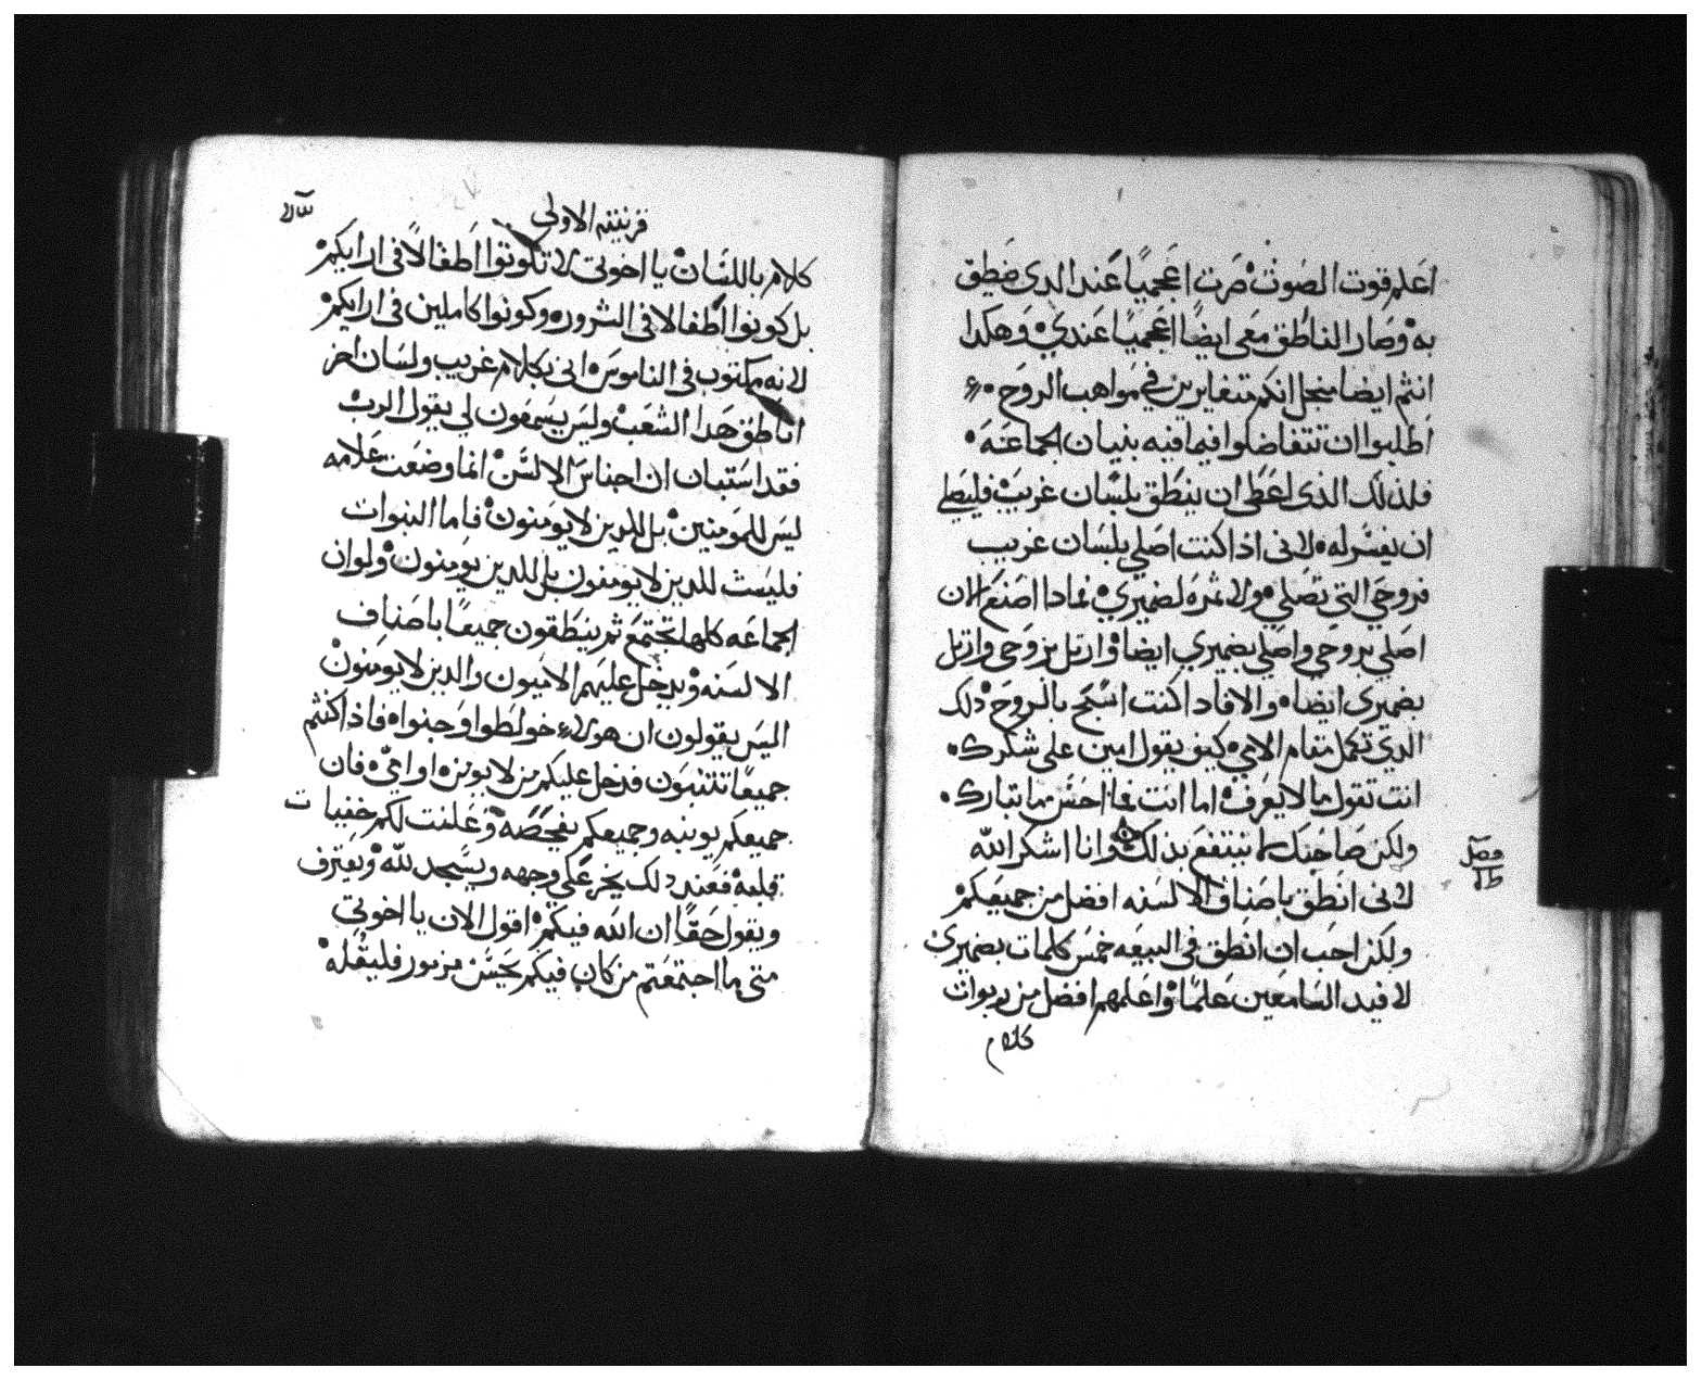 اعلم قوت الصوت صرت اعجميًا عند الدى ينطق
به وصار الناطق معى ايضًا اعجميًا عندي وهكدا
انتم ايضا منجل انكم متغايرين في مواهب الروح
اطلبوا ان تتفاضلوا فيما فيه بنيان الجماعه
فلذلك الذى اعطى ان ينطق بلسان غريب فليصلي
ان يفسر له لانى اذا كنت اصلي بلسان غريب
فروحي التي تصلي ولا ثمره لضميري فمادا اصنع الان
اصلي بروحي واصلي بضميري ايضا وارتل بروحى وارتل
بضميرى ايضا والا فادا كنت اسبح بالروح دلك
الدي تكمل مقام الامي كيف يقول امين على شكرك
انت تقول ما لا يعرف اما انت فما احسن ما تبارك
ولكن صاحبك لم ينتفع بذلك وانا اشكر الله
فصل
لانى انطق باصناف الالسنه افضل من جميعكم
ولكن احب ان انطق فى البيعه خمس كلمات بضميرى
لافيد السامعين علمًا واعلمهم افضل من ربوات
كلام
قرنتيه الاولى
كلام باللسان يا اخوتي لا تكونوا اطفالًا فى ارايكم
بل كونوا اطفالا فى الشرور وكونوا كاملين فى ارايكم
لانه مكتوب فى الناموس انى بكلام غريب ولسان اخر
اناطق هدا الشعب وليس يسمعون لي يقول الرب
فقد استبان ان اجناس الالسن انما وضعت علامه
ليس للمومنين بل للدين لا يومنون فاما النبوات
فليست للدين لا يومنون بل للدين يومنون ولو ان
الجماعه كلها تجتمع ثم ينطقون جميعًا باصناف
الالسنه ويدخل عليهم الاميون والدين لا يومنون
اليس يقولون ان هولاء خولطوا وجنوا فاذا كنتم
جميعًا تتنبون فدخل عليكم من لا يومن او امي فان
جميعكم يوبنه وجميعكم يفحصه وعلنت لكم خفيات
قلبه فعند دلك يخر على وجهه ويسجد لله ويعترف
ويقول حقًا ان الله فيكم اقول الان يا اخوتي
متى ما اجتمعتم من كان فيكم يحسن مزمور فليقله